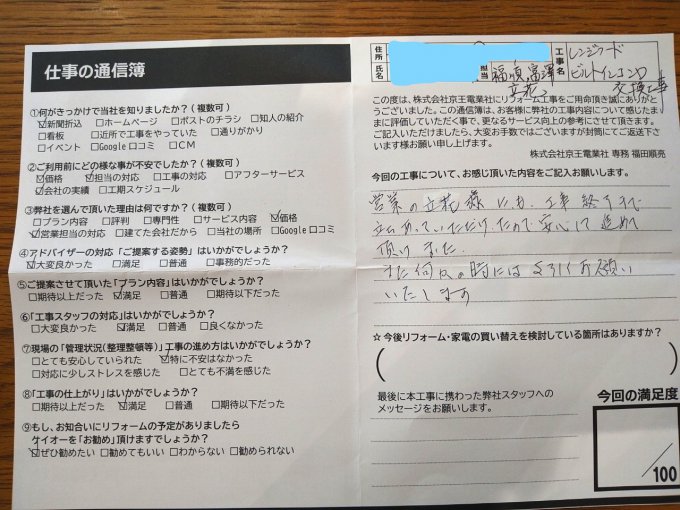 仕事の通信簿
①何がきっかけで当社を知りましたか？（複数可）
☑新聞折込 □ホームページ □ポストのチラシ □知人の紹介
□看板 □近所で工事をやっていた □通りがかり
□イベント □Google口コミ □ＣＭ
②ご利用前にどの様な事が不安でしたか？（複数可）
☑価格 ☑担当の対応 □工事の対応 □アフターサービス
☑会社の実績 □工期スケジュール
③弊社を選んで頂いた理由は何ですか？（複数可）
□プラン内容 □評判 □専門性 □サービス内容 ☑価格
☑営業担当の対応 □建てた会社だから □当社の場所 □Google口コミ
④アドバイザーの対応「ご提案する姿勢」はいかがでしょうか？
☑大変良かった □満足 □普通 □事務的だった
⑤ご提案させて頂いた「プラン内容」はいかがでしょうか？
□期待以上だった ☑満足 □普通 □期待以下だった
⑥「工事スタッフの対応」はいかがでしょうか？
□大変良かった ☑満足 □普通 □良くなかった
⑦現場の「管理状況（整理整頓等）」工事の進め方はいかがでしょうか？
□とても安心していられた ☑特に不安はなかった
□対応に少しストレスを感じた □とても不満を感じた
⑧「工事の仕上がり」はいかがでしょうか？
□期待以上だった ☑満足 □普通 □期待以下だった
⑨もし、お知合いにリフォームの予定がありましたら
ケイオーを「お勧め」頂けますでしょうか？
☑ぜひ勧めたい □勧めてもいい □わからない □勧められない
住所
氏名
担当
福順 富澤
立花
工事名
レンジフード
ビルトインコンロ
交換工事
この度は、株式会社京王電業社にリフォーム工事をご用命頂き誠にありがとう
ございました。この通信簿は、お客様に弊社の工事内容について感じたま
まに評価していただく事で、更なるサービス向上の参考にさせて頂きます。
ご記入いただけましたら、大変お手数ではございますが封筒にてご返送下さ
います様お願い申し上げます。
株式会社京王電業社 専務 福田順亮
今回の工事について、お感じ頂いた内容をご記入お願いします。
営業の立花様にも、工事終了まで
立ちあっていただけたので安心して進めて
頂けました。
また何かの時には お願い
いたします
☆今後リフォーム・家電の買い替えを検討している箇所はありますか？
（ ）
最後に本工事に携わった弊社スタッフへの
メッセージをお願いします。
今回の満足度
/100